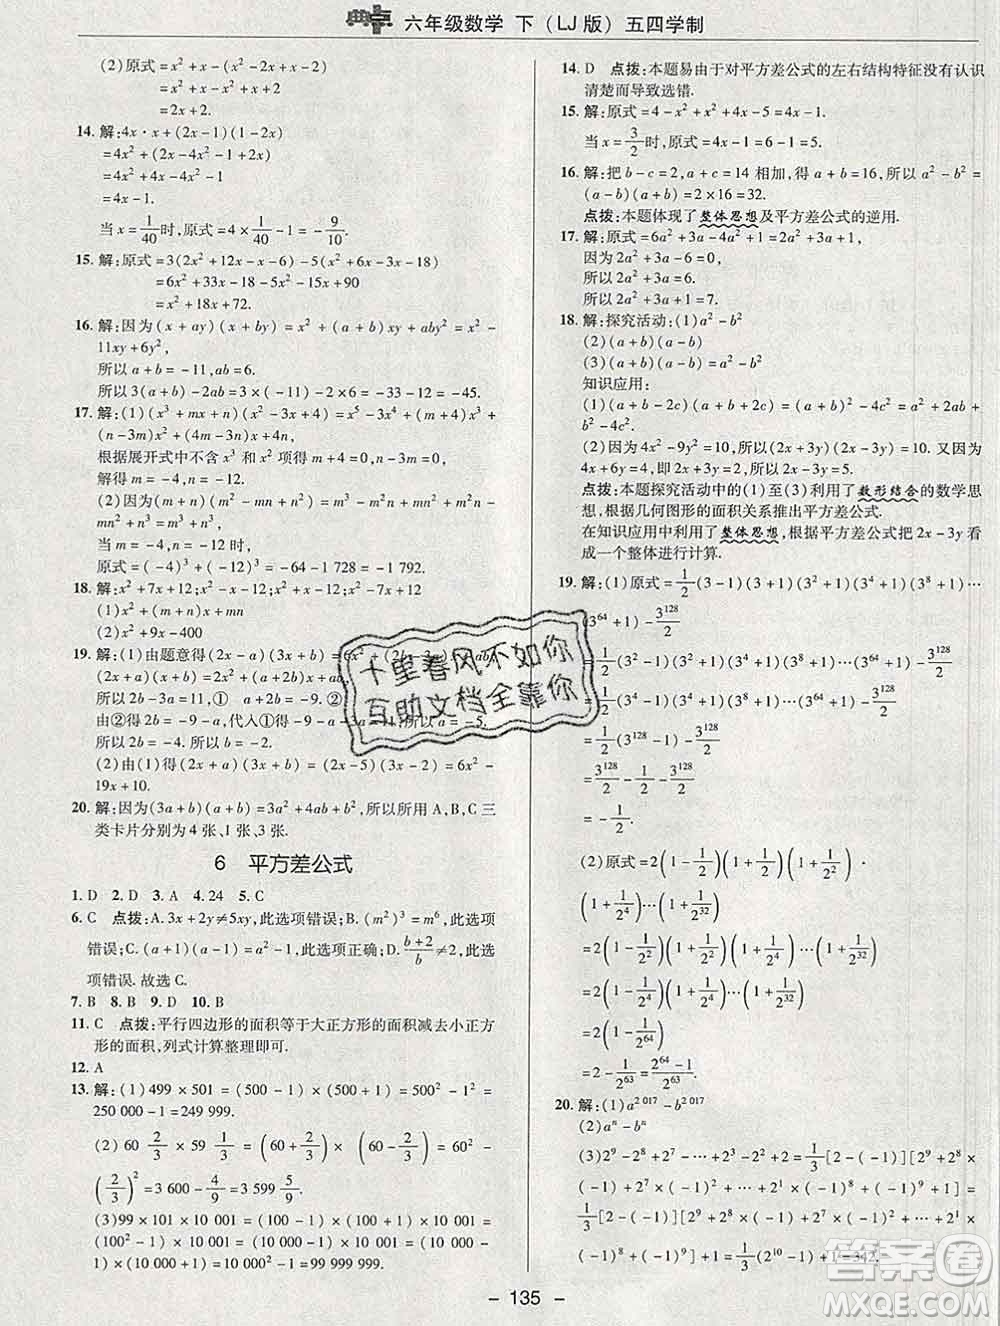 典点 六年级数学 下（LJ版）五四学制
(2)原式=x²+x-(x²-2x+x-2)
=x²+x-x²+x+2
=2x+2.
14. 解:4x·x+(2x-1)(1-2x)
=4x²+(2x-4x²-1+2x)
=4x²+4x-4x²-1
=4x-1.
当x=1/40时,原式=4×1/40-1=-9/10.
15. 解:原式=3(2x²+12x-x-6)-5(x²+3x-6x-18)
=6x²+33x-18-5x²+15x+90
=x²+18x+72.
16. 解:因为(x+ay)(x+by)=x²+(a+b)xy+aby²=x²-
11xy+6y²,
所以a+b=-11,ab=6.
所以3(a+b)-2ab=3×(-11)-2×6=-33-12=-45.
17. 解:(1)(x³+mx+n)(x²-3x+4)=x⁵-3x⁴+(m+4)x³+
(n-3m)x²+(4m-3n)x+4n,
根据展开式中不含x³和x²项得m+4=0,n-3m=0,
解得m=-4,n=-12.
(2)因为(m+n)(m²-mn+n²)=m³-m²n+mn²+m²n-
mn²+n³=m³+n³,
当m=-4,n=-12时,
原式=(-4)³+(-12)³=-64-1 728=-1 792.
18. 解:x²+7x+12;x²-x-12;x²+x-12;x²-7x+12
(1)x²+(m+n)x+mn
(2)x²+9x-400
19. 解:(1)由题意得(2x-a)(3x+b)=6x²+(2b-3a)x-ab,
(2x+a)(x+b)=2x²+(a+2b)x+ab,
所以2b-3a=11,① a+2b=-9.②
由②得2b=-9-a,代入①得-9-a-3a=11,所以a=-5.
所以2b=-4.所以b=-2.
(2)由(1)得(2x+a)(3x+b)=(2x-5)(3x-2)=6x²-
19x+10.
20. 解:因为(3a+b)(a+b)=3a²+4ab+b²,所以所用A、B、C三
类卡片分别为4张、1张、3张.
6 平方差公式
1. D 2. D 3. A 4. 24 5. C
6. C 点拨:A. 3x+2y≠5xy,此选项错误;B. (m²)³=m⁶,此选项
错误;C. (a+1)(a-1)=a²-1,此选项正确;D. (b+2)/b≠2,此选
项错误. 故选C.
7. B 8. B 9. D 10. B
11. C 点拨:平行四边形的面积等于大正方形的面积减去小正方
形的面积,列式计算整理即可.
12. A
13. 解:(1)499×501=(500-1)×(500+1)=500²-1²=
250 000-1=249 999.
(2)60 2/3×59 1/3=(60+2/3)×(60-2/3)=60²-
(2/3)²=3 600-4/9=3 599 5/9.
(3)99×101×10 001=(100-1)×(100+1)×10 001=
(100²-1)×10 001=(10 000-1)×(10 000+1)=10⁸-
1=99 999 999.
14. D 点拨:本题易由于对平方差公式的左右结构特征没有认识
清楚而导致选错.
15. 解:原式=4-x²+x²+4x-5=4x-1.
当x=3/2时,原式=4x-1=6-1=5.
16. 解:把b-c=2,a+c=14相加,得a+b=16,所以a²-b²=
(a-b)(a+b)=2×16=32.
点拨:本题体现了整体思想及平方差公式的逆用.
17. 解:原式=6a²+3a-4a²+1=2a²+3a+1,
因为2a²+3a-6=0,
所以2a²+3a=6,
所以原式=2a²+3a+1=7.
18. 解:探究活动:(1)a²-b²
(2)(a+b)(a-b)
(3)(a+b)(a-b)=a²-b²
知识应用:
(1)(a+b-2c)(a+b+2c)=(a+b)²-4c²=a²+2ab+
b²-4c².
(2)因为4x²-9y²=10,所以(2x+3y)(2x-3y)=10. 又因为
4x+6y=4,所以2x+3y=2. 所以2x-3y=5.
点拨:本题探究活动中的(1)至(3)利用了数形结合的数学思
想,根据几何图形的面积关系推出平方差公式.
在知识应用中利用了整体思想,根据平方差公式把2x-3y看
成一个整体进行计算.
19. 解:(1)原式=1/2(3-1)(3+1)(3²+1)(3⁴+1)(3⁸+1)…
(3⁶⁴+1)-3¹²⁸/2
=1/2(3²-1)(3²+1)(3⁴+1)(3⁸+1)…(3⁶⁴+1)-3¹²⁸/2
=1/2(3¹²⁸-1)-3¹²⁸/2
=3¹²⁸/2-1/2-3¹²⁸/2
=-1/2.
(2)原式=2(1-1/2)(1+1/2)(1+1/2²)(1+1/2⁴)
(1+1/2⁸)…(1+1/2³²)
=2(1-1/2²)(1+1/2²)(1+1/2⁴)(1+1/2⁸)…(1+1/2³²)
=2(1-1/2³²)(1+1/2³²)
=2(1-1/2⁶⁴)
=2-1/2⁶³=(2⁶⁴-1)/2⁶³.
20. 解:(1)a²⁰¹⁷-b²⁰¹⁷
(2)aⁿ-bⁿ
(3)2⁹-2⁸+2⁷-…+2³-2²+2=1/3[2-(-1)][2⁹+2⁸×
(-1)+2⁷×(-1)²+…+2¹×(-1)⁸+(-1)⁹+1]=
1/3[2-(-1)][2⁹+2⁸×(-1)+2⁷×(-1)²+…+2¹×
(-1)⁸+(-1)⁹]+1=1/3(2¹⁰-1)+1=342.
十里春风不如你
互助文档全靠你
答案圈
MXQE.COM
- 135 -